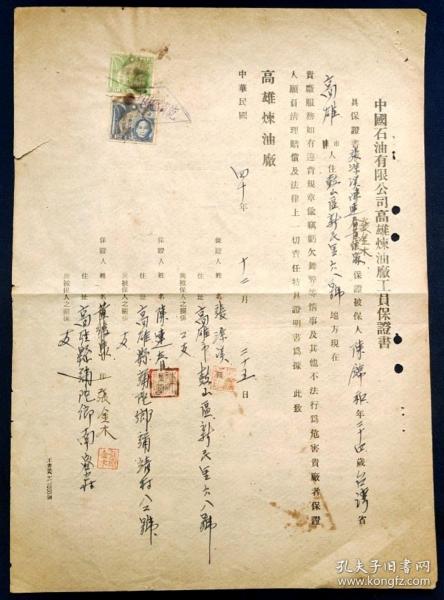 中國石油有限公司高雄煉油廠工員保證書
具保證書張深溪陳連春張金木保證被保人陳歲台灣省
高雄市人住鼓山區新民里六八號地方現在
貴廠服務如有違背規章虧欠舞弊等情事及其他不法行為危害貴廠者保證
人願負清理賠償及法律上一切責任特具證明書為據此致
高雄煉油廠
中華民國四十年十二月二十五日
保證人姓名張深溪
住址高雄市鼓山區新民里六八號
與被保人之關係友
保證人姓名陳連春
住址高雄縣彌陀鄉彌靖村八二號
與被保人之關係友
保證人姓名張金木
住址高雄縣彌陀鄉南寮莊
與被保人之關係友
孔夫子旧书网